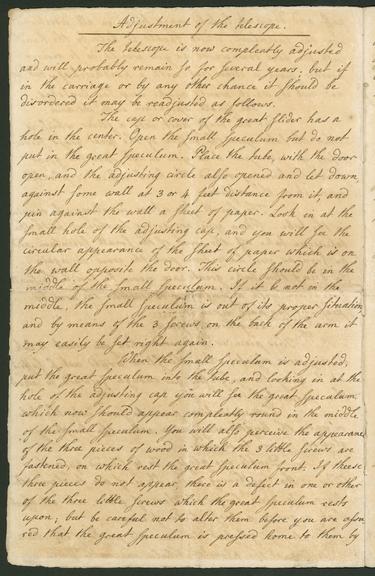 Adjustment of the telescope.
The telescope is now compleatly adjusted
and will probably remain so for several years. but if
in the carriage or by any other chance it should be
disordered it may be readjusted as follows.
The cap or cover of the great slider has a
hole in the center. Open the small speculum but do not
put in the great speculum. Place the tube, with the door
open, and the adjusting circle also opened and let down
against some wall at 3 or 4 feet distance from it, and
pin against the wall a sheet of paper. Look in at the
small hole of the adjusting cap, and you will see the
circular appearance of the sheet of paper which is on
the wall opposite the door. This circle should be in the
middle of the small speculum. If it be not in the
middle, the small speculum is out of its proper situation
and by means of the 3 screws on the back of the arm it
may easily be set right again.
When the small speculum is adjusted,
put the great speculum into the tube, and looking in at the
hole of the adjusting cap you will see the great speculum
which now should appear compleatly round in the middle
of the small speculum. You will also perceive the appearance
of the three pieces of wood in which the 3 little screws are
fastened, on which rest the great speculum front. If these
three pieces do not appear, there is a defect in one or other
of the three little screws which the great speculum rests
upon; but be careful not to alter them before you are assu
red that the great speculum is pressed home to them by